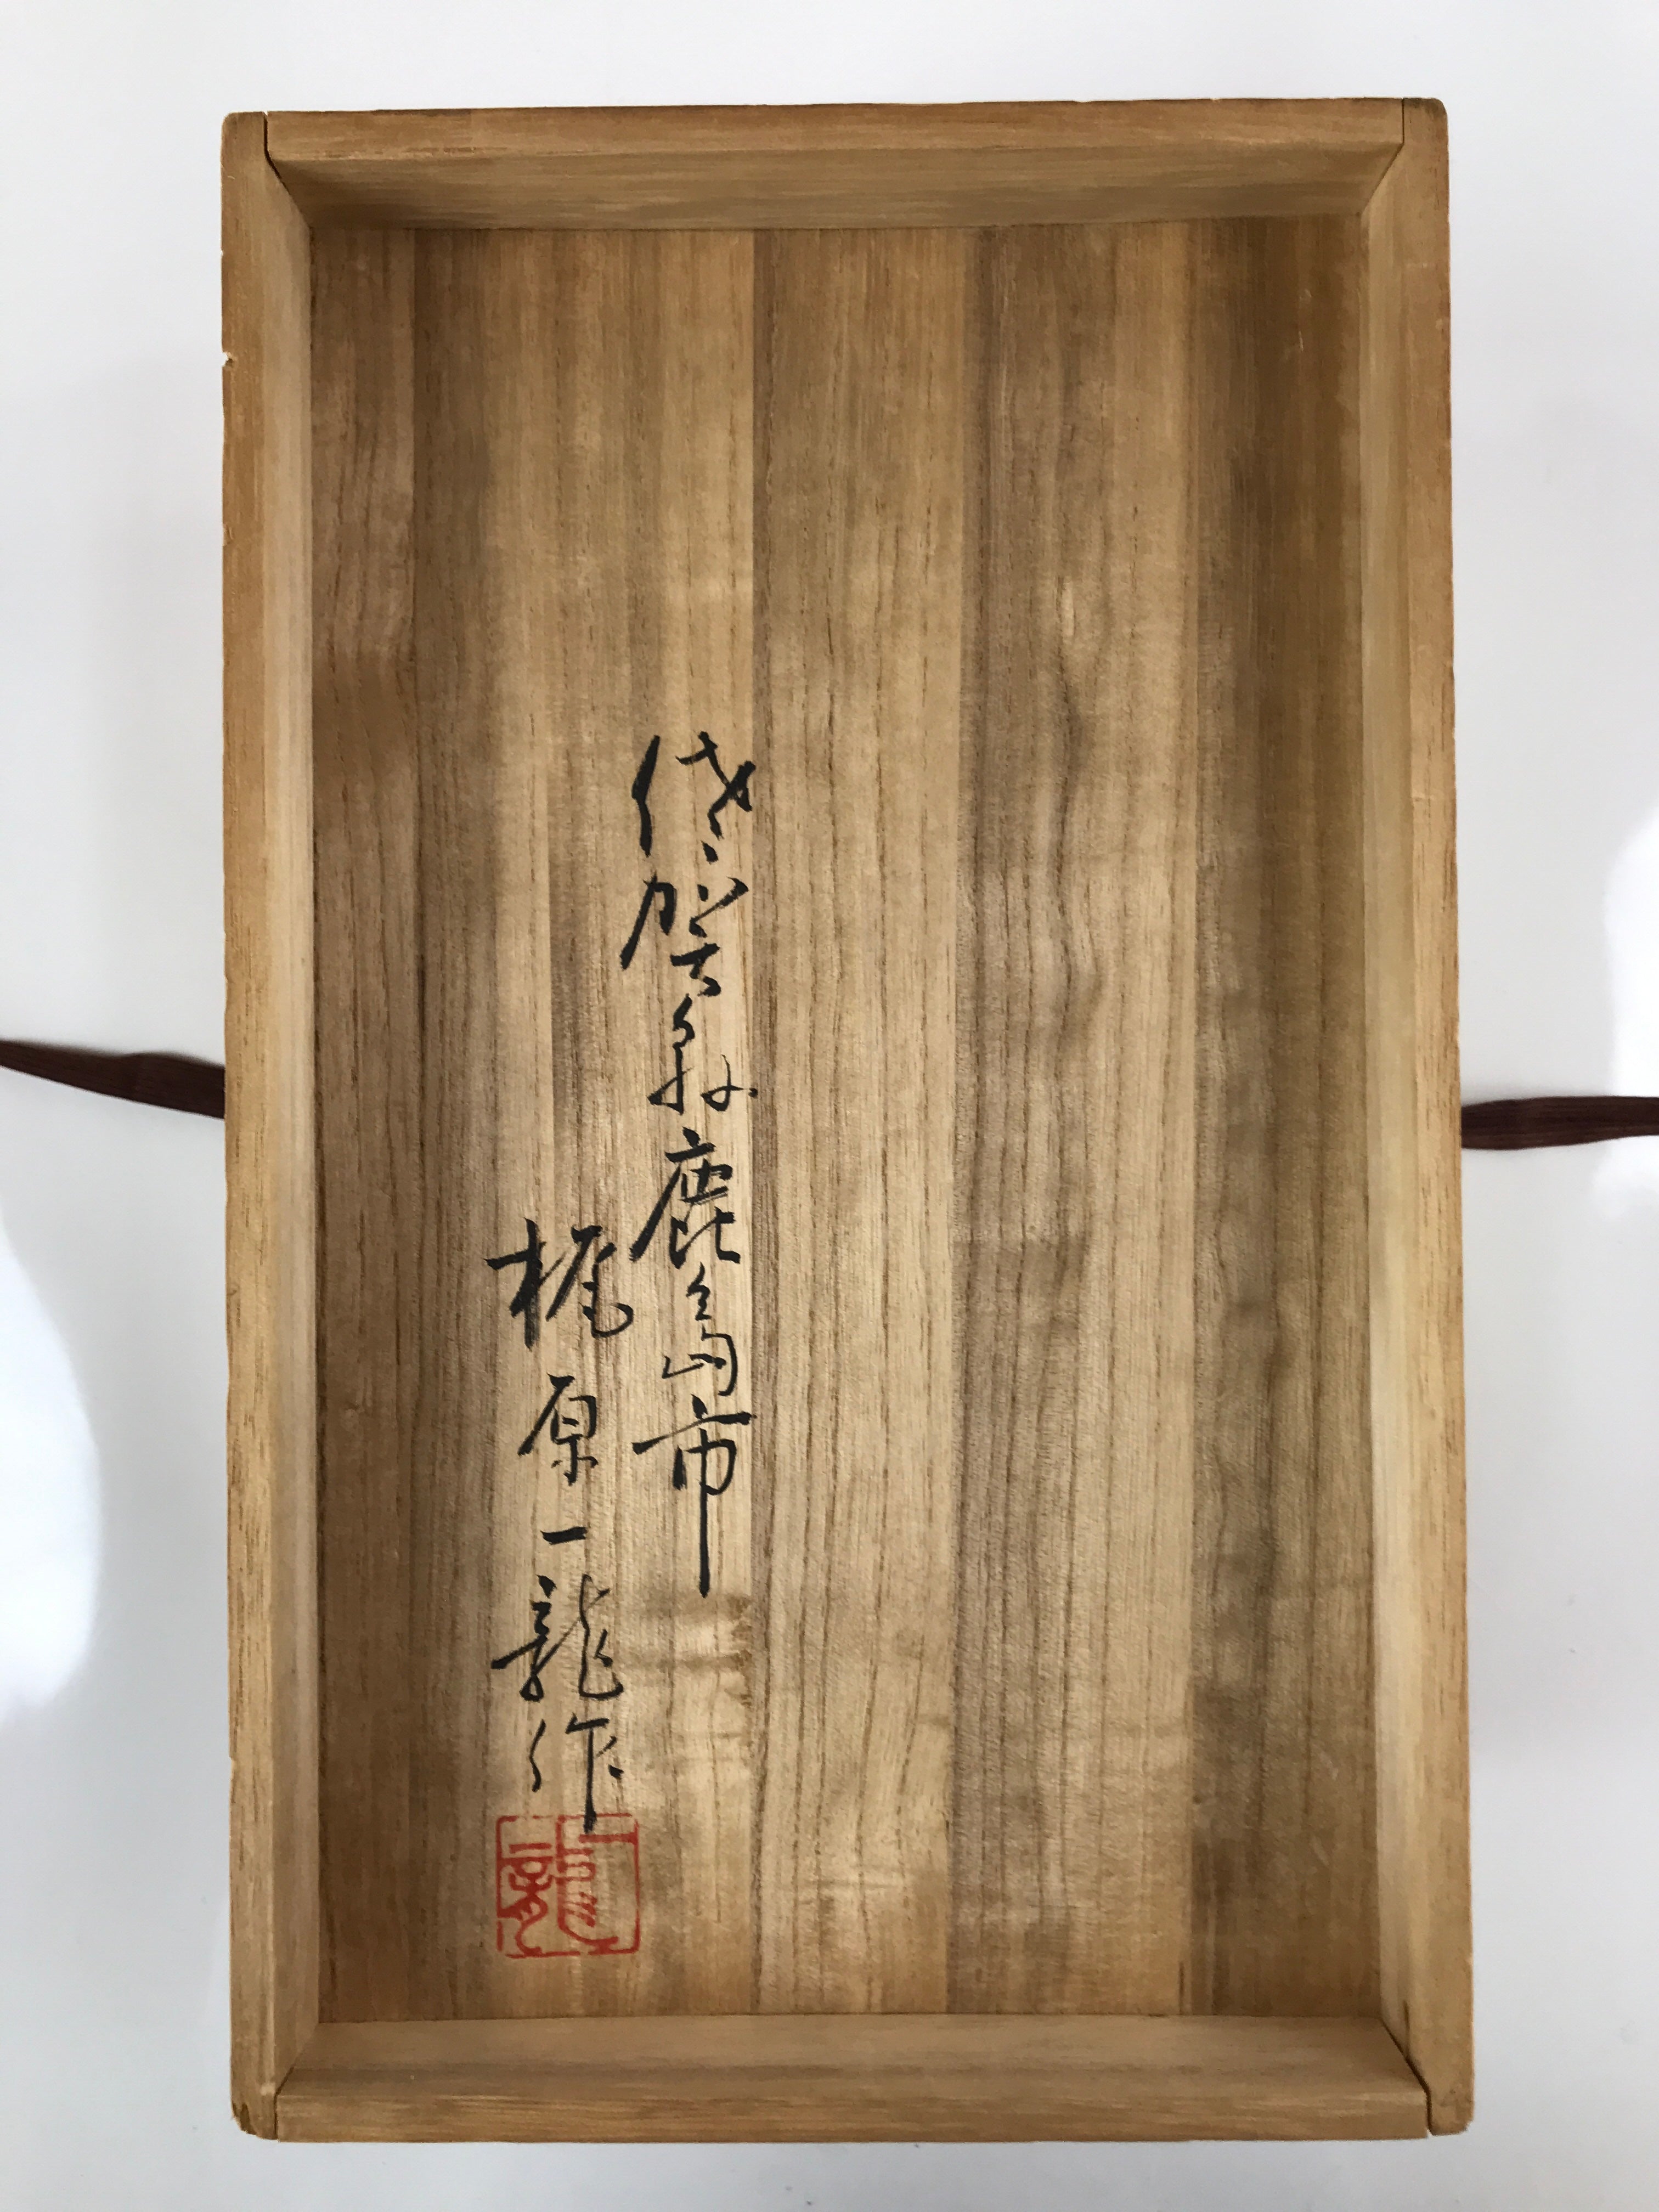 佐賀県鹿島市
梶原一龍作